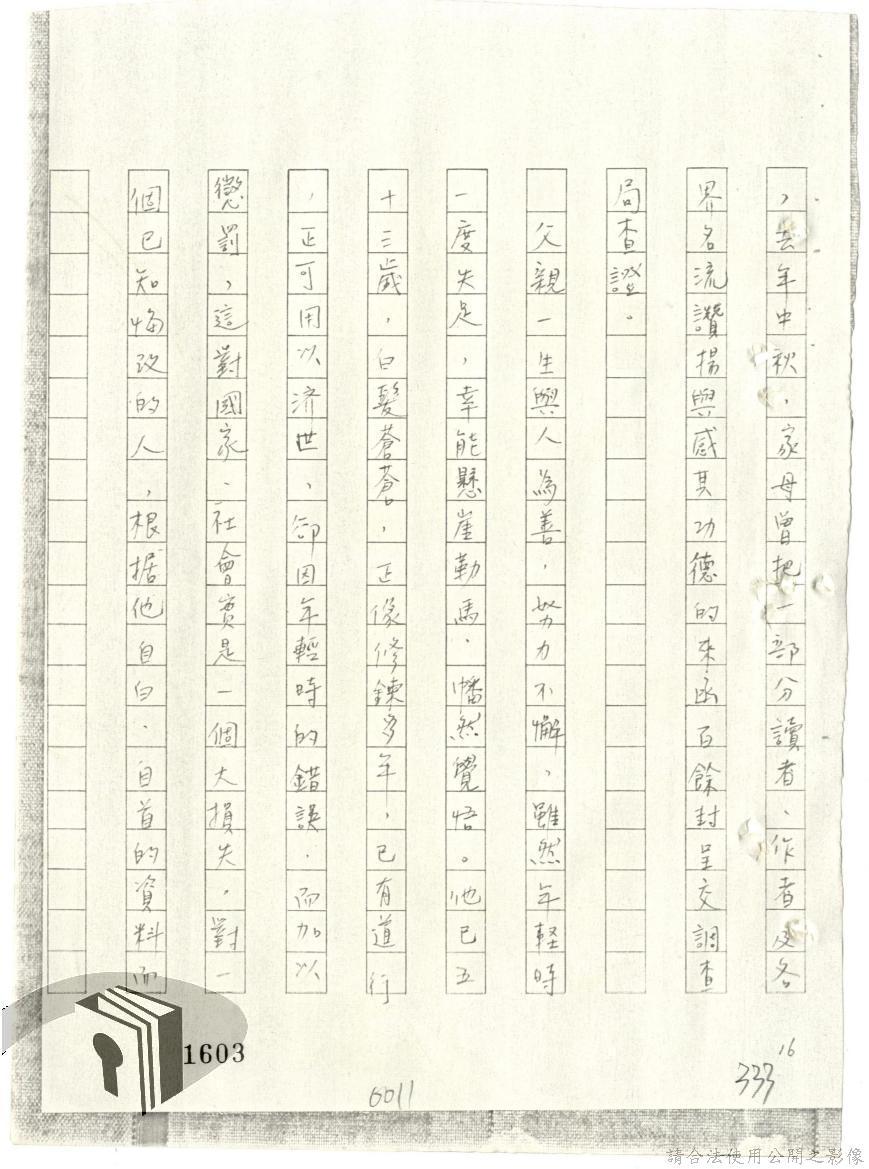 ，去年中秋，家母曾把一部分讀者、作者及各
界名流讚揚與感其功德的來函百餘封呈交調查
局查證。
父親一生與人為善，努力不懈，雖然年輕時
一度失足，幸能懸崖勒馬，幡然覺悟。他已五
十三歲，白髮蒼蒼，正像修鍊多年，已有道行
，正可用以济世，卻因年輕時的錯誤，而加以
懲罰，這對國家、社會實是一個大損失，對一
個已知悔改的人，根据他自白、自首的資料而
16
333
6011
1603
請合法使用公開之影像